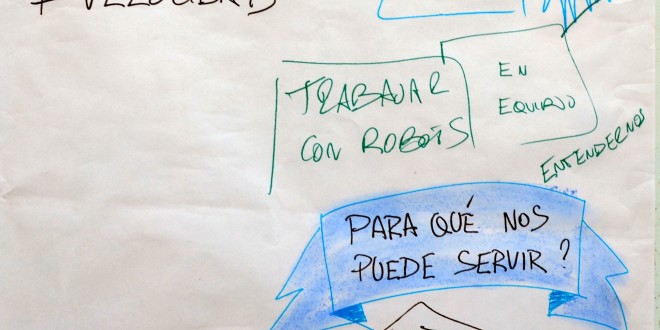 TRABAJAR
CON ROBOTS
EN
EQUIPO
ENTENDERNOS
PARA QUÉ NOS
PUEDE SERVIR?